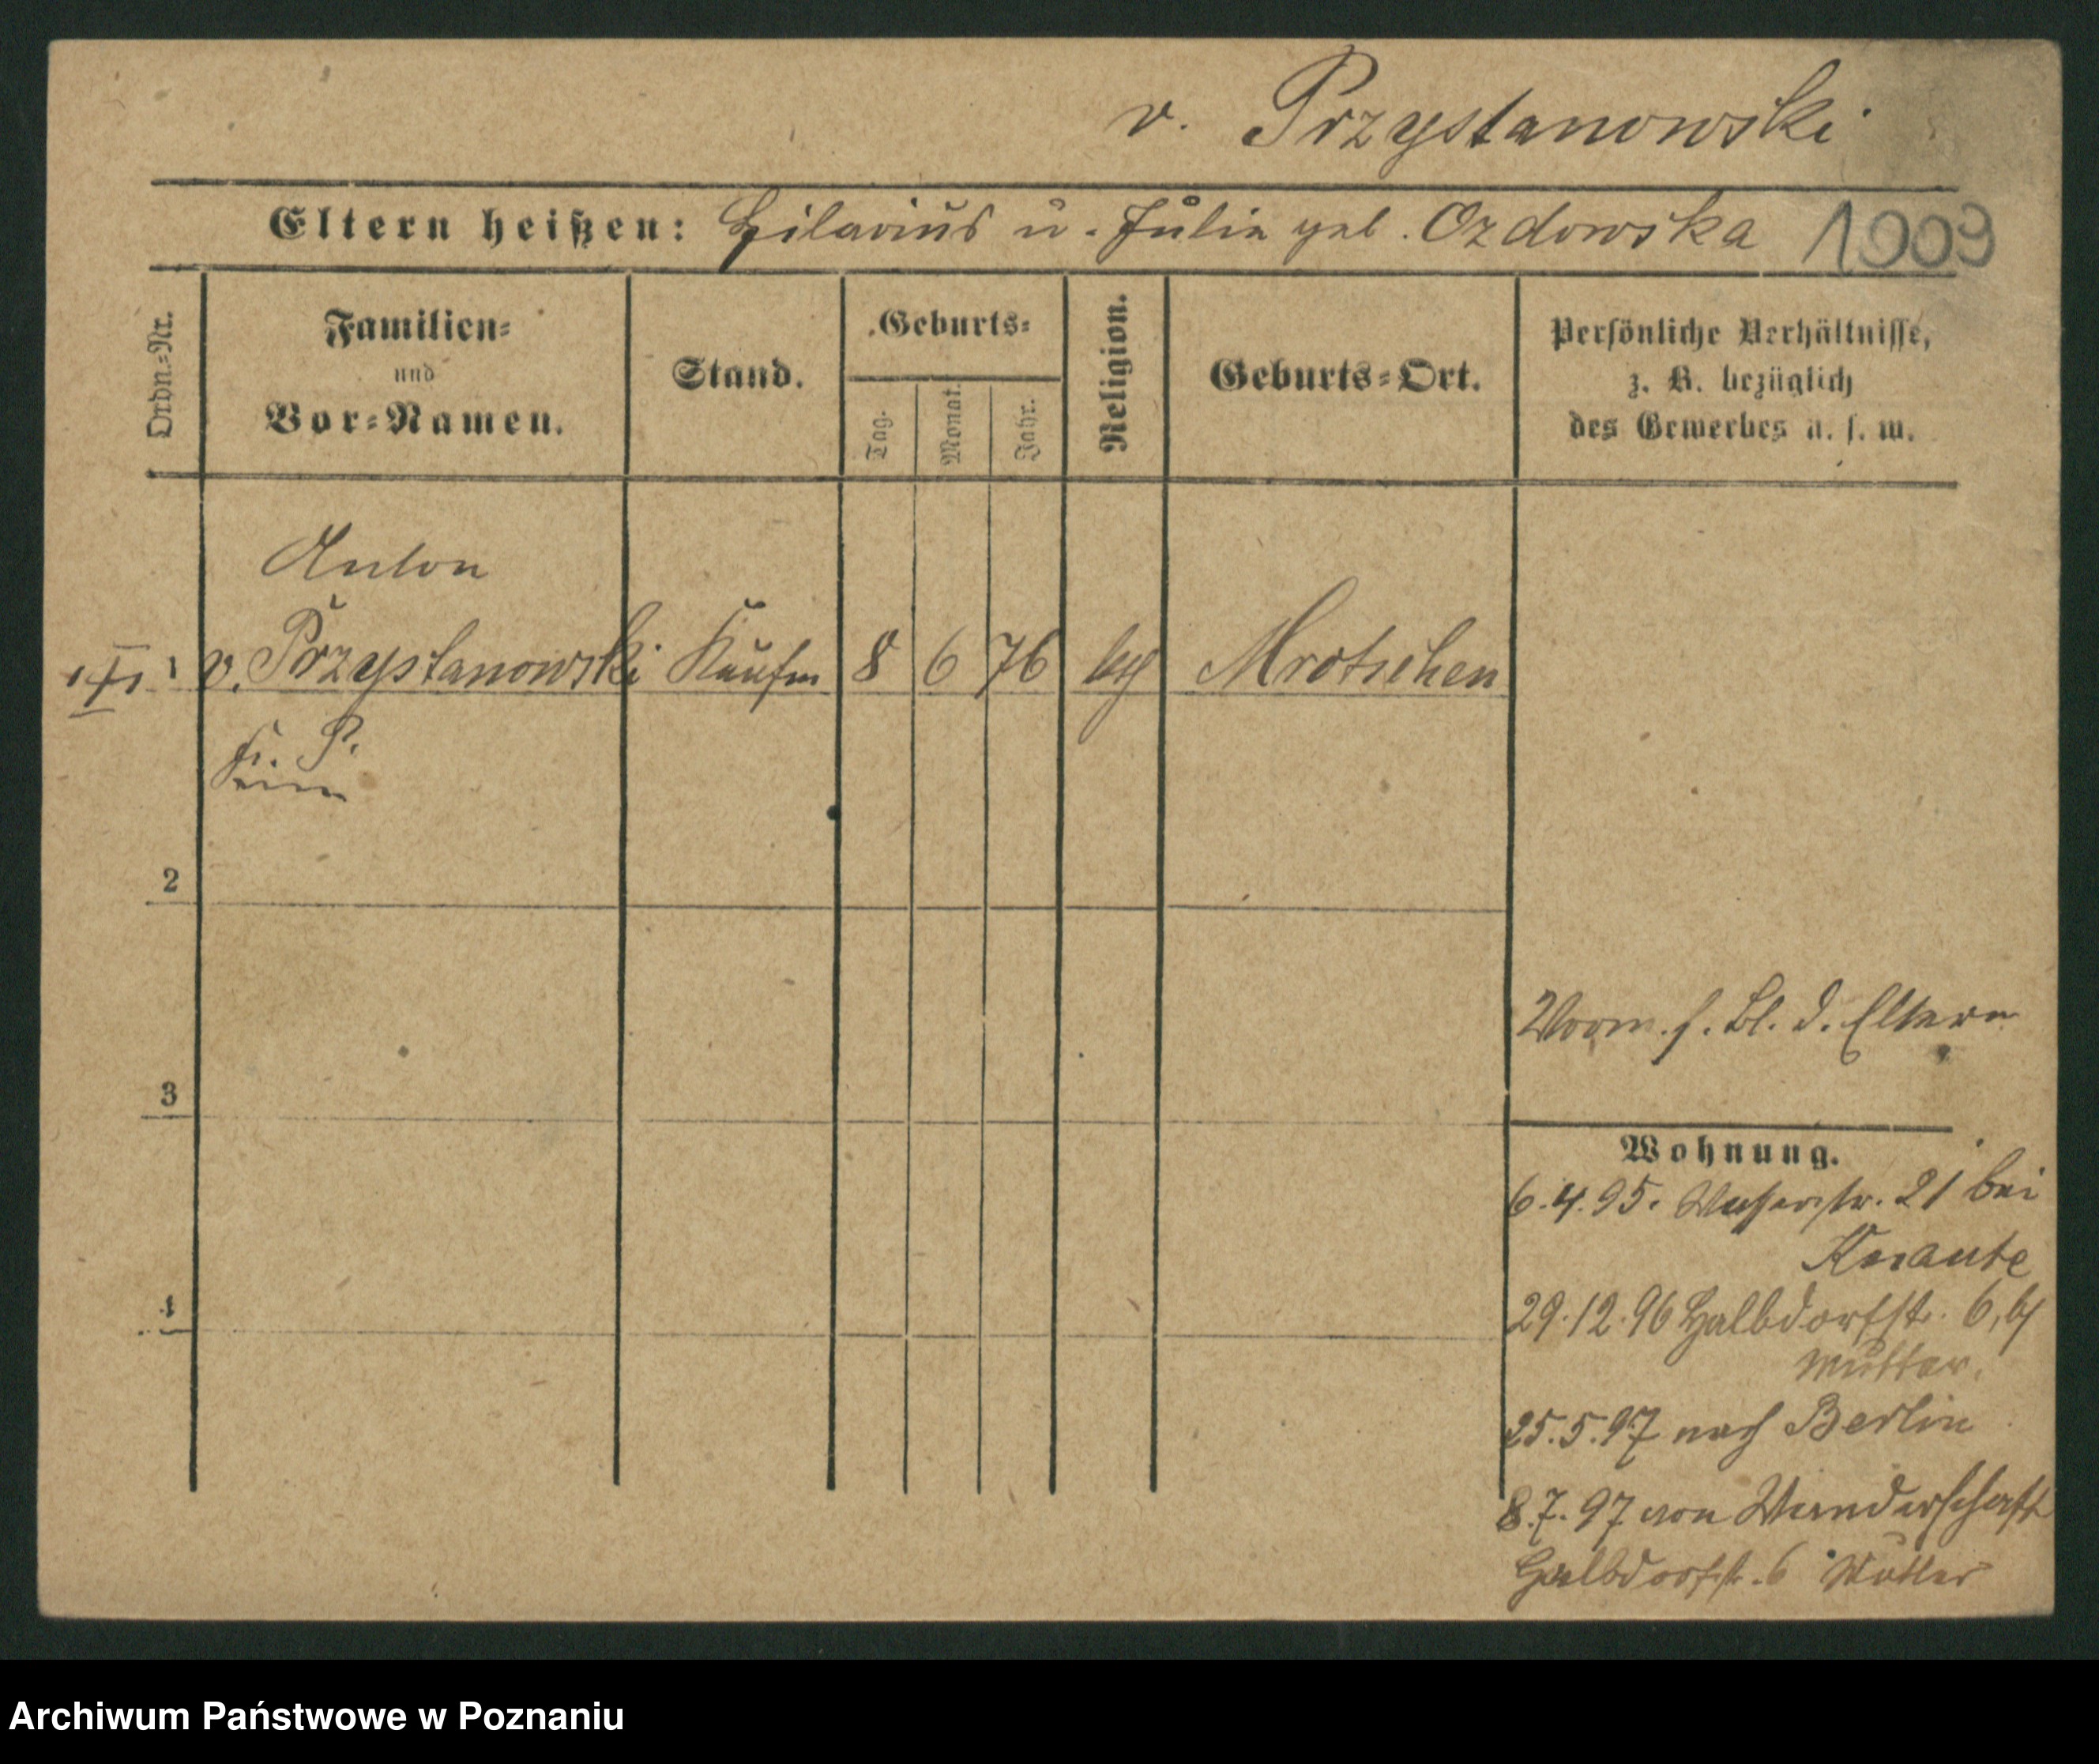 v. Przystanowski
Eltern heißen: Hilarius u. Julia geb. Ozdowska 1909
Ordn=Nr.
Familien=
und
Vor=Namen.
Stand.
Geburts=
Tag.
Monat.
Jahr.
Religion.
Geburts=Ort.
Persönliche Verhältnisse,
z. B. bezüglich
des Gewerbes u. s. w.
Anton
1 v. Przystanowski Kaufm 8 6 76 Mrotschen
2
3
4
Vorm. s. Bl. d. Eltern
Wohnung.
6.4.95. Wasserstr. 21 bei
Knaute
29.12.96 Halbdorfstr. 6, b/
Mutter.
25.5.97 nach Berlin
8.7.97 von Wanderschaft
Halbdorfstr. 6 Mutter
Archiwum Państwowe w Poznaniu